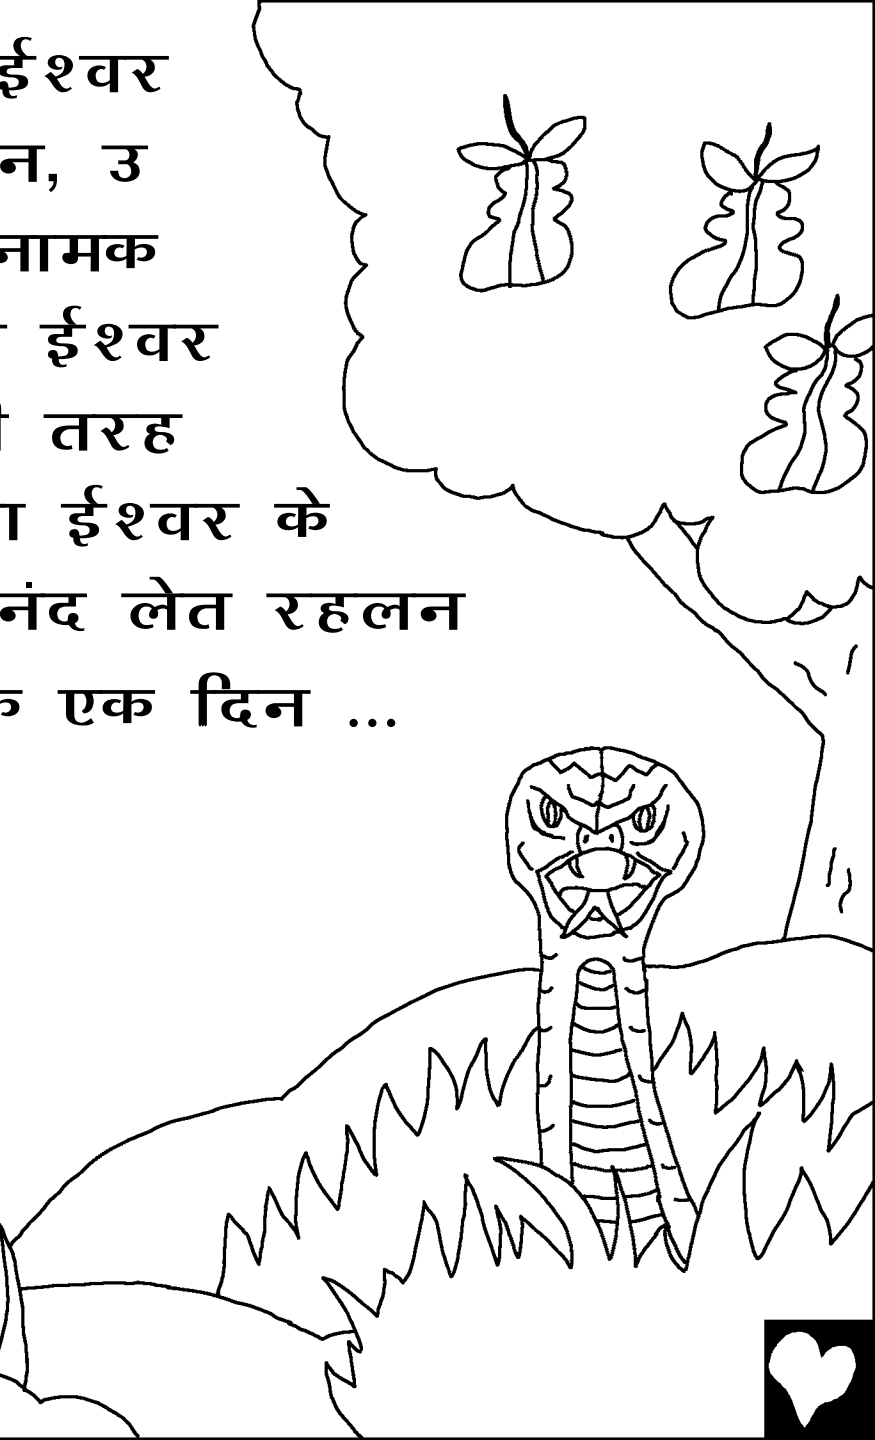 ईश्वर
न, उ
नामक
ईश्वर
तरह
ईश्वर के
नंद लेत रहलन
एक दिन ...